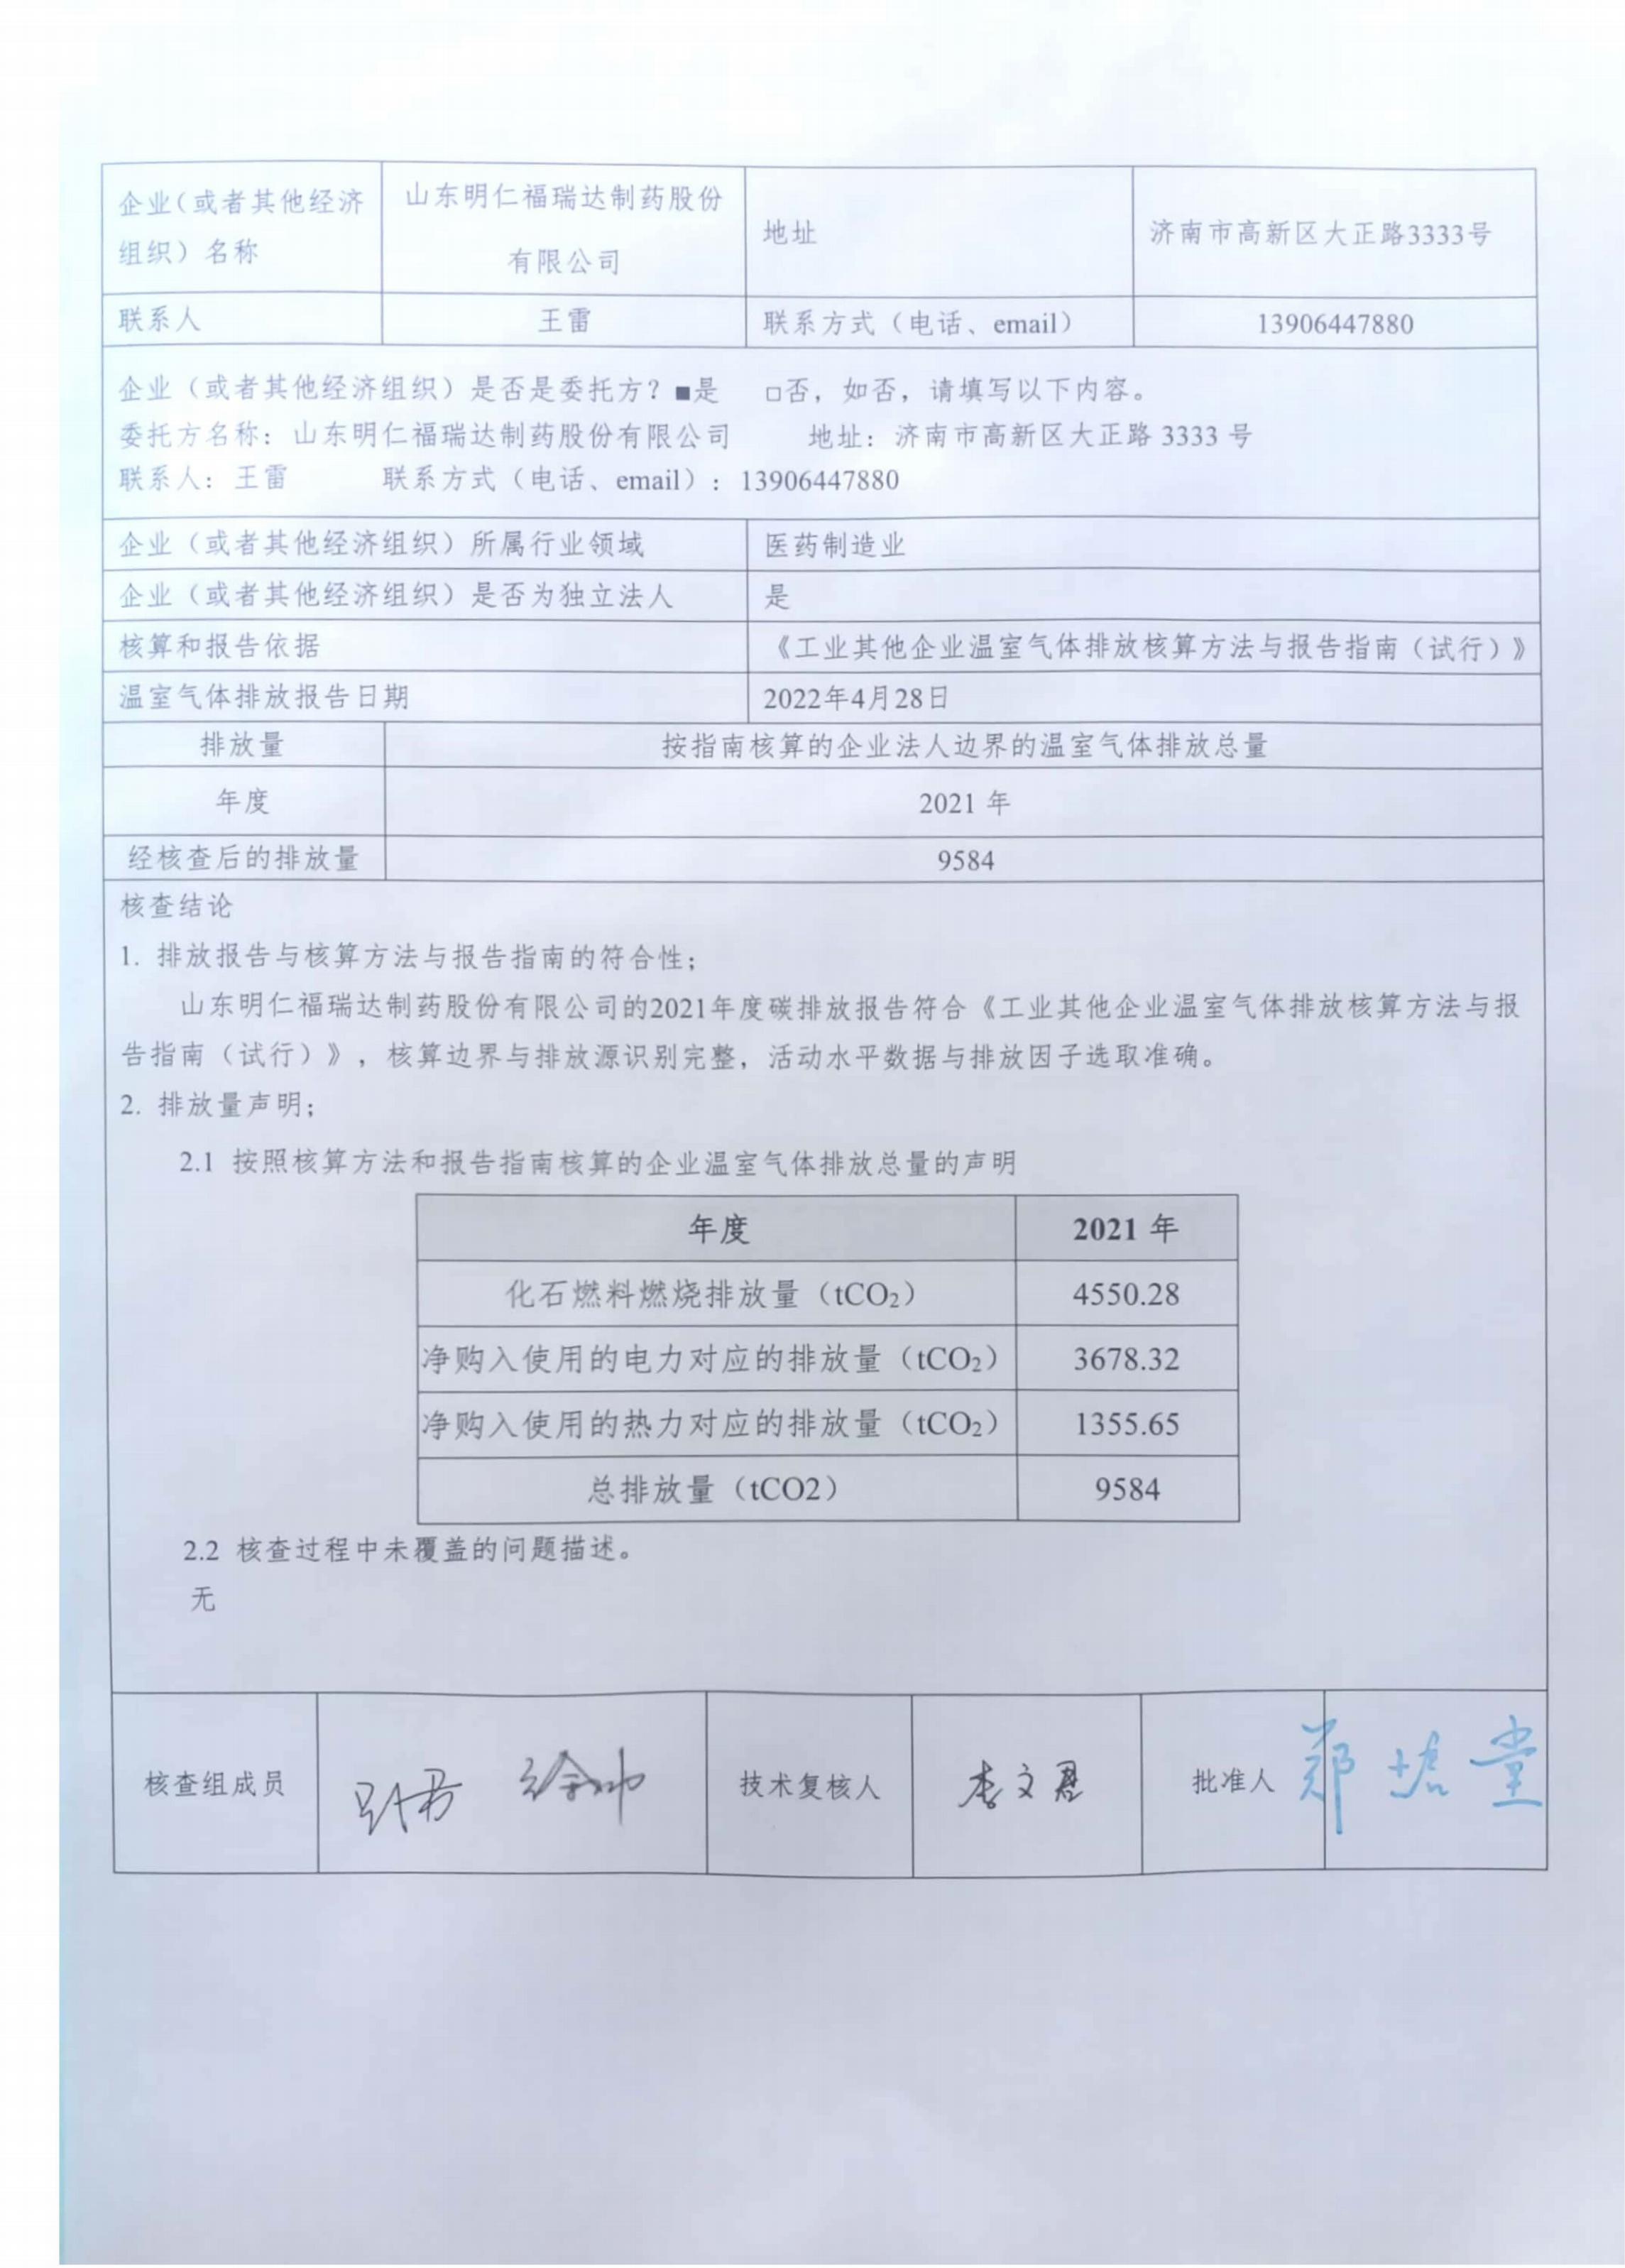 企业（或者其他经济
组织）名称
山东明仁福瑞达制药股份
有限公司
地址
济南市高新区大正路3333号
联系人
王雷
联系方式（电话、email）
13906447880
企业（或者其他经济组织）是否是委托方？■是 □否，如否，请填写以下内容。
委托方名称：山东明仁福瑞达制药股份有限公司 地址：济南市高新区大正路 3333 号
联系人：王雷 联系方式（电话、email）：13906447880
企业（或者其他经济组织）所属行业领域
医药制造业
企业（或者其他经济组织）是否为独立法人
是
核算和报告依据
《工业其他企业温室气体排放核算方法与报告指南（试行）》
温室气体排放报告日期
2022年4月28日
排放量
按指南核算的企业法人边界的温室气体排放总量
年度
2021 年
经核查后的排放量
9584
核查结论
1. 排放报告与核算方法与报告指南的符合性；
山东明仁福瑞达制药股份有限公司的2021年度碳排放报告符合《工业其他企业温室气体排放核算方法与报
告指南（试行）》，核算边界与排放源识别完整，活动水平数据与排放因子选取准确。
2. 排放量声明；
2.1 按照核算方法和报告指南核算的企业温室气体排放总量的声明
年度
2021 年
化石燃料燃烧排放量（tCO₂）
4550.28
净购入使用的电力对应的排放量（tCO₂）
3678.32
净购入使用的热力对应的排放量（tCO₂）
1355.65
总排放量（tCO2）
9584
2.2 核查过程中未覆盖的问题描述。
无
核查组成员
技术复核人
李文君
批准人